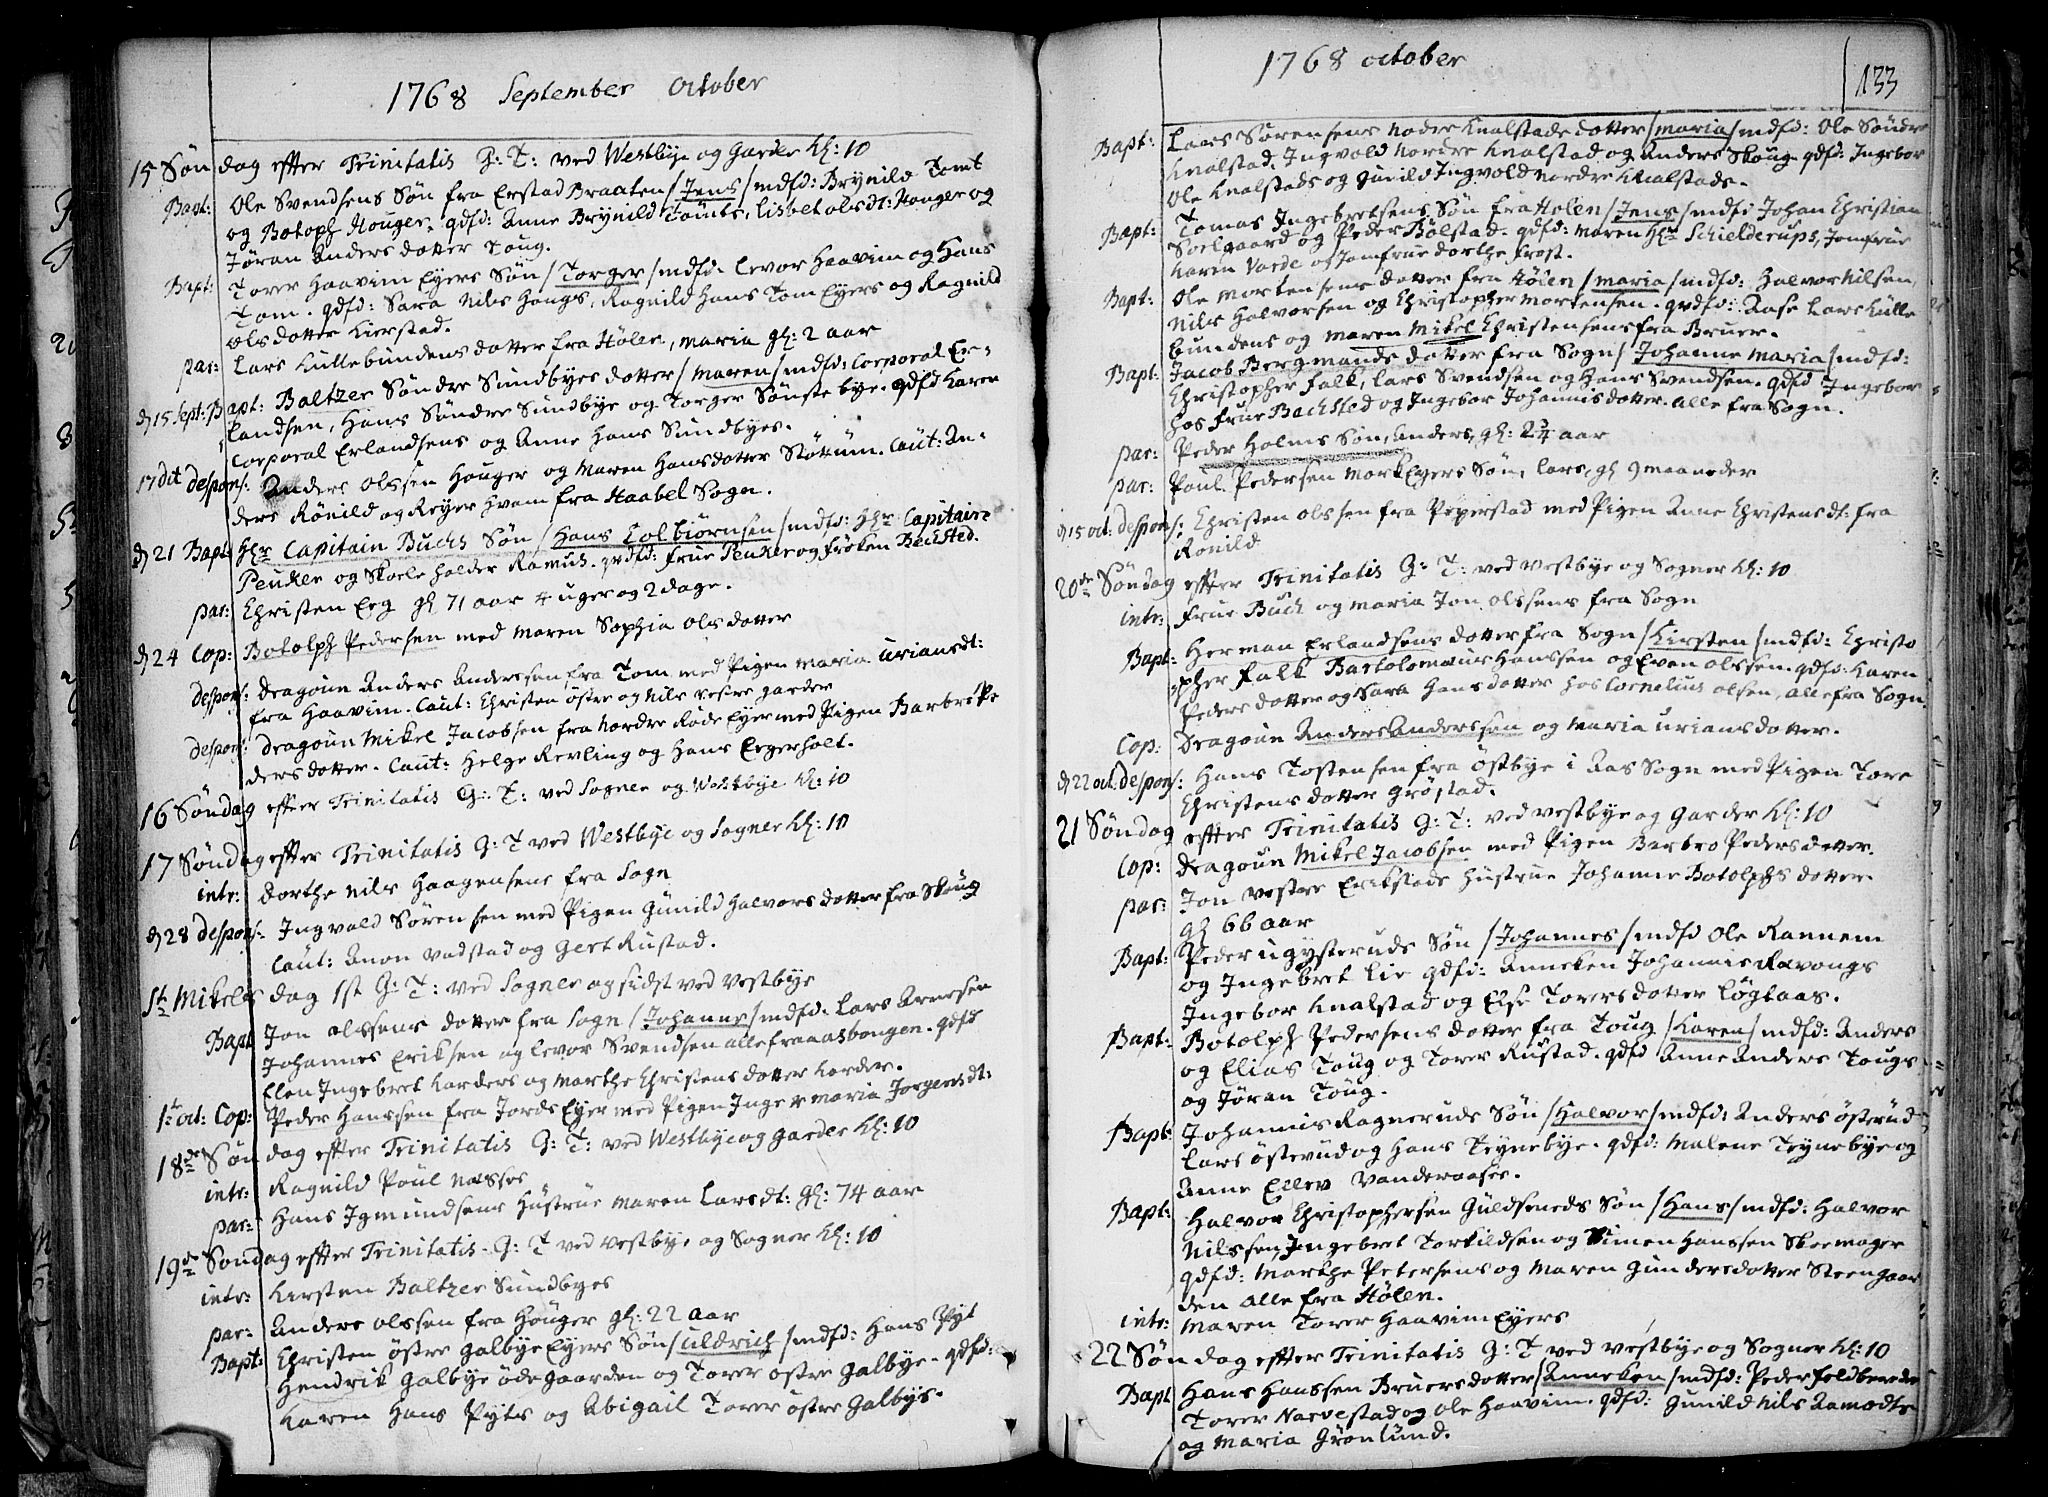 1768 September October
15 Søndag effter Trinitatis G: T: ved Westbye og Garder Kl: 10
Bapt: Ole Svendsens Søn fra Erstad Braaten /Jens/ mdfd: Brynild Tomt
og Botoph Houger. qdfd: Anne Brynild Tomts, Lisbet olsdt: Houger og
Jøran Andersdotter Toug.
Bapt: Torer Haavim Eyers Søn /Torger/ mdfd. Levor Haavim og Hans
Tom. qdfd: Sara Nils Haugs, Ragnild Hans Tom Eyers og Ragnild
olsdotter Kierstad.
par: Lars Kullebundens dotter fra Hølen, maria gl: 2 aar
d 15 Sept: Bapt: Baltzer Søndre Sundbyes dotter /maren/ mdfd: Corporal Er-
landsen, Hans Søndre Sundbye og Torger Sønstebye. qdfd Karen
Corporal Erlandsens og Anne Hans Sundbyes.
17 dit Despons: Anders olssen Houger og Maren Hansdotter Støttum. Caut: An-
ders Rönild og Reyer Hvam fra Haabel Sogn.
d 21 Bapt: Hr Capitain Buchs Søn /Hans Colbiørnsen/ mdfd: Hr Capitain
Peuker og Skoeleholder Ramus. qvdfd: Frue Peuker og frøken Bechsted.
par: Christen Eeg gl 71 aar 4 uger og 2 dage.
d 24 Cop: Botolph Pedersen med Maren Sophia olsdotter
Despons: Dragoun Anders Anderssen fra Tom med Pigen Maria Uriansdt:
fra Haavim. Caut: Christen østre og Nils vestre garder
Despons: Dragoun Mikel Jacobsen fra Nordre Røde Eyer med Pigen Barbro Pe
dersdotter. Caut: Helge Revling og Hans Eegerholt.
16 Søndag effter Trinitatis G: T: ved Sogner og Westbye Kl: 10
17 Søndag effter Trinitatis G: T ved Westbye og Sogner Kl: 10
intr: Dorthe Nils Haagensens fra Sogn
d 28 Despons: Ingvald Sørensen med Pigen Gunild Halvorsdotter fra Skoug
Caut: Anon Vadstad og Gert Rustad.
St Mikels dag 1st G: T: ved Sogner og sidst ved Vestbye
Bapt Jon olssens dotter fra Sogn /Johanne/ mdfd: Lars Arnesen
Johannes Eriksen og Levor Svendsen alle fra aasbongen. qdfd
Elen Ingebret Korders og Marthe Christensdotter Korder.
1t oct: Cop: Peder Hanssen fra Jords Eyer med Pigen Inger maria Jørgensdt:
18de Søndag effter Trinitatis G: T: ved Westbye og Garder Kl: 10
intr: Ragnild Poul Næsses
par: Hans Igmundsens Hustrue Maren Larsdt: Gl: 74 aar
19de Søndag effter Trinitatis. G: T ved Vestbye og Sogner Kl: 10
intr: Kirsten Baltzer Sundbyes
par: Anders olssen fra Houger gl: 22 aar
Bapt: Christen østre Galbye Eyers Søn /uldrich/ mdfd: Hans Pyt
Hendrik Galbye ødegaarden og Torer østre Galbye. qdfd:
Karen Hans Pyts og Abigail Torer østre Galbys.
1768 october
133
Bapt: Lars Sørensens Nordre Knalstads dotter /maria/ mdfd: Ole Søndre
Knalstad, Ingvold Nordre Knalstad og Anders Skoug. qdfd: Ingebor
Ole Knalstads og Gunild Ingvold Nordre Knalstads.
Bapt: Tomas Ingebretsens Søn fra Holen /Jens/ mdfd Johan Christian
Soelgaard og Peder Bølstad. qdfd: Maren Hr Schielderups, Jomfrue
Karen Varde og Jomfrue dorthe frost.
Bapt: Ole Mortensens dotter fra Hølen /maria/ mdfd: Halvor Nilsen,
Nils Halvorsen og Christopher Mortensen. qvdfd: Aase Lars Kulle
bundens og Maren Mikel Christensens fra Bruer.
Bapt: Jacob Bergmands dotter fra Sogn /Johanne maria/ mdfd:
Christopher Falk, Lars Svendsen og Hans Svendsen. qdfd Ingebor
hos Frue Bachsted og Ingebor Johannisdotter. alle fra Sogn.
par: Peder Holms Søn, Anders, gl: 2¾ aar
par: Poul Pedersen Mork Eyers Søn, Lars, gl 9 maaneder
d 15 oct: Despons: Christen olssen fra Peperstad med Pigen Anne Christensdt: fra
Rönild
20de Søndag effter Trinitatis G: T: ved Vestbye og Sogner Kl: 10
intr: Frue Buch og maria Jon olssens fra Sogn
Bapt: Herman Erlandsens dotter fra Sogn /Kirsten/ mdfd: Christo
pher Falk Bartolomæus Hanssen og Even olssen. qdfd: Karen
Pedersdotter og Sara Hansdotter hos Cornelius olsen, alle fra Sogn.
Cop: Dragoun Anders Anderssen og Maria Uriansdotter.
d 22 oct. Despons: Hans Tostensen fra østbye i Aas Sogn med Pigen Tore
Christensdotter Grøstad.
21 Søndag effter Trinitatis G: T: ved Vestbye og Garder Kl: 10
Cop: Dragoun Mikel Jacobsen med Pigen Barbro Pedersdotter.
par: Jon vestre Erikstads Hustrue Johanne Botolphsdotter
gl 66 aar
Bapt: Peder ugysteruds Søn /Johannes/ mdfd Ole Rannem
og Ingebret Lie qdfd: Anneken Johannis Ravongs
Ingebor Knalstad og Else Torersdotter Løgtaas.
Bapt: Botolph Pedersens dotter fra Toug /Karen/ mdfd: Anders
og Elias Toug og Torer Rustad. qdfd Anne Anders Tougs
og Jøran Toug.
Bapt: Johannis Ragneruds Søn /Halvor/ mdfd: Anders østerud
Lars østerud og Hans Teynebye. qdfd: Malene Teynebye og
Anne Ellev Vanderaases.
Bapt: Halvor Christophersen Guldseneds Søn /Hans/ mdfd: Halvor
Nilssen Ingebret Torkildsen og Simen Hanssen Skoemager
qdfd: Marthe Petersens og Maren Gundersdotter Steengaar
den alle fra Hølen.
intr: Maren Torer Haavim Eyers
22 Søndag effter Trinitatis G: T ved Vestbye og Sogner Kl: 10
Bapt Hans Hanssen Bruersdotter /Anneken/ mdfd: Peder Feldberede
Torer Narvestad og Ole Haavim. qdfd: Gunild Nils Aamodts
og Maria Grønlund.